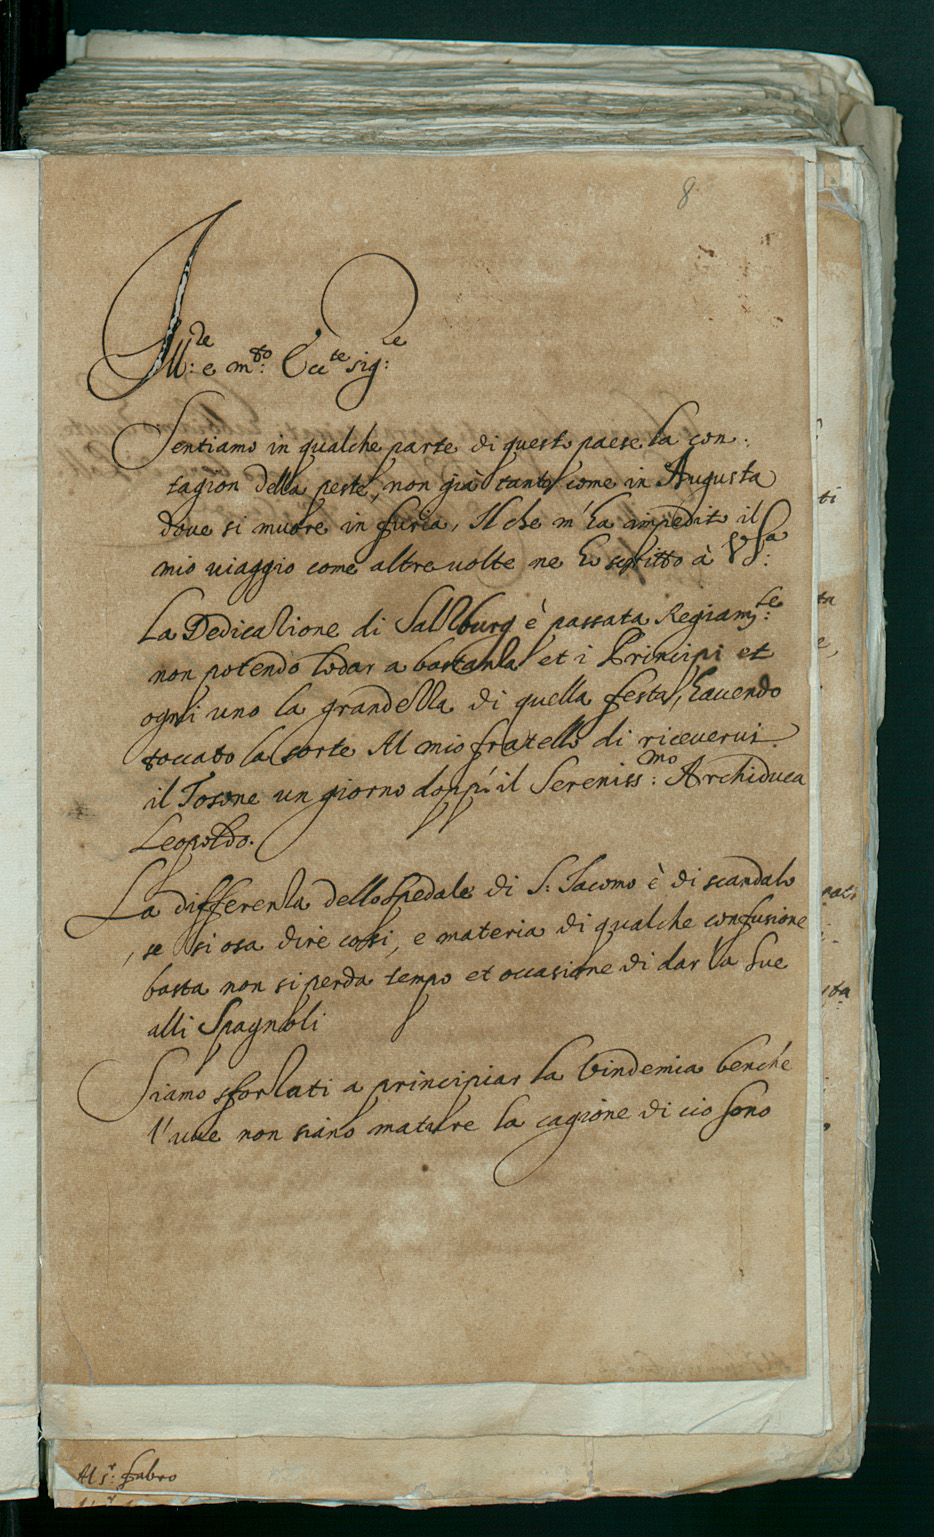 8
Ill:re e m:to Ecc:te sig:re
Sentiamo in qualche parte di questo paese la con:
tagion della peste, non già tanto come in Augusta
doue si muore in furia, Il che m'ha impedito il
mio uiaggio come altre uolte ne ho scritto à VS:a
La Dedicazione di Salzburg è passata Regiam:te
non potendo lodar a bastanza et i Principi et
ogni uno la grandezza di quella festa, hauendo
toccato la sorte Al mio fratello di riceverui
il Tosone un giorno doppò il Sereniss:mo Archiduca
Leopoldo.
La differenza dello spedale di S: Jacomo è di scandalo
, se si osa dire cosi, e materia di qualche confusione
basta non si perda tempo et occasione di dar la sue
alli Spagnoli
Siamo sforzati a principiar la Vindemia benche
l'uue non siano mature la cagione di cio sono
Al s:r fabro